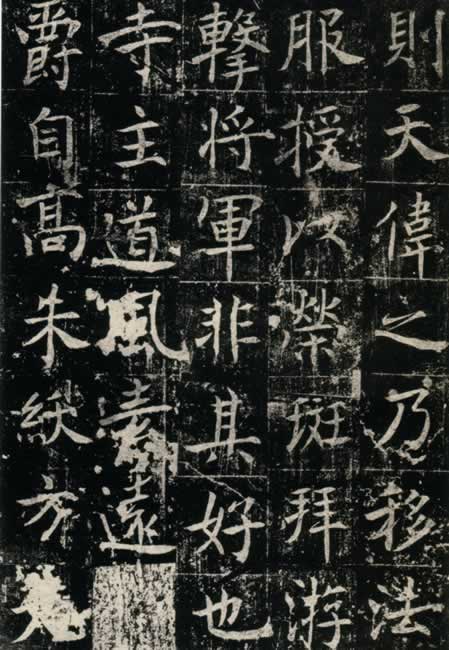 則天偉之乃移法
服授以榮班拜游
擊将軍非其好也
寺主道風素遠
爵自髙朱紱方